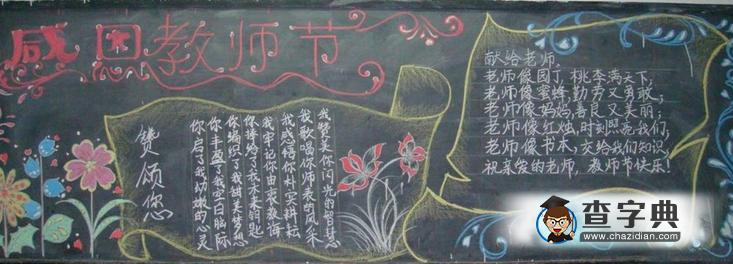 感恩教师节
赞颂您
我赞美你闪光的智慧
我歌唱你师表的风采
我感悟你朴实耕耘
我牢记你由衷教诲
你捧给了我未来钥匙
你编织了我甜美梦想
你丰盈了我空白脑际
你启了我幼嫩的心灵
献给老师:
老师像园丁,桃李满天下;
老师像蜜蜂,勤劳又勇敢;
老师像妈妈,善良又美丽;
老师像红烛,时刻照亮我们;
老师像书本,交给我们知识,
祝亲爱的老师,教师节快乐!
查字典
www.chazidian.com